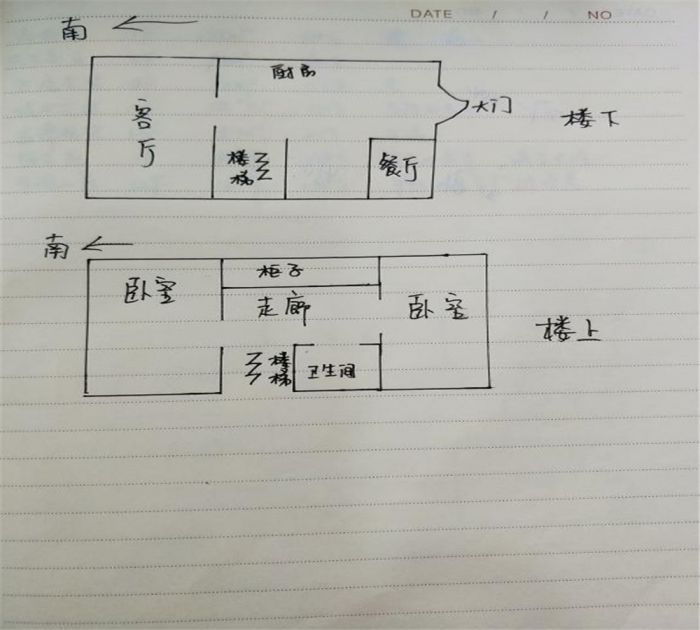 DATE / / NO
南
厨房
客厅
大门
楼下
楼梯
餐厅
南
柜子
卧室
走廊
卧室
楼上
楼梯
卫生间